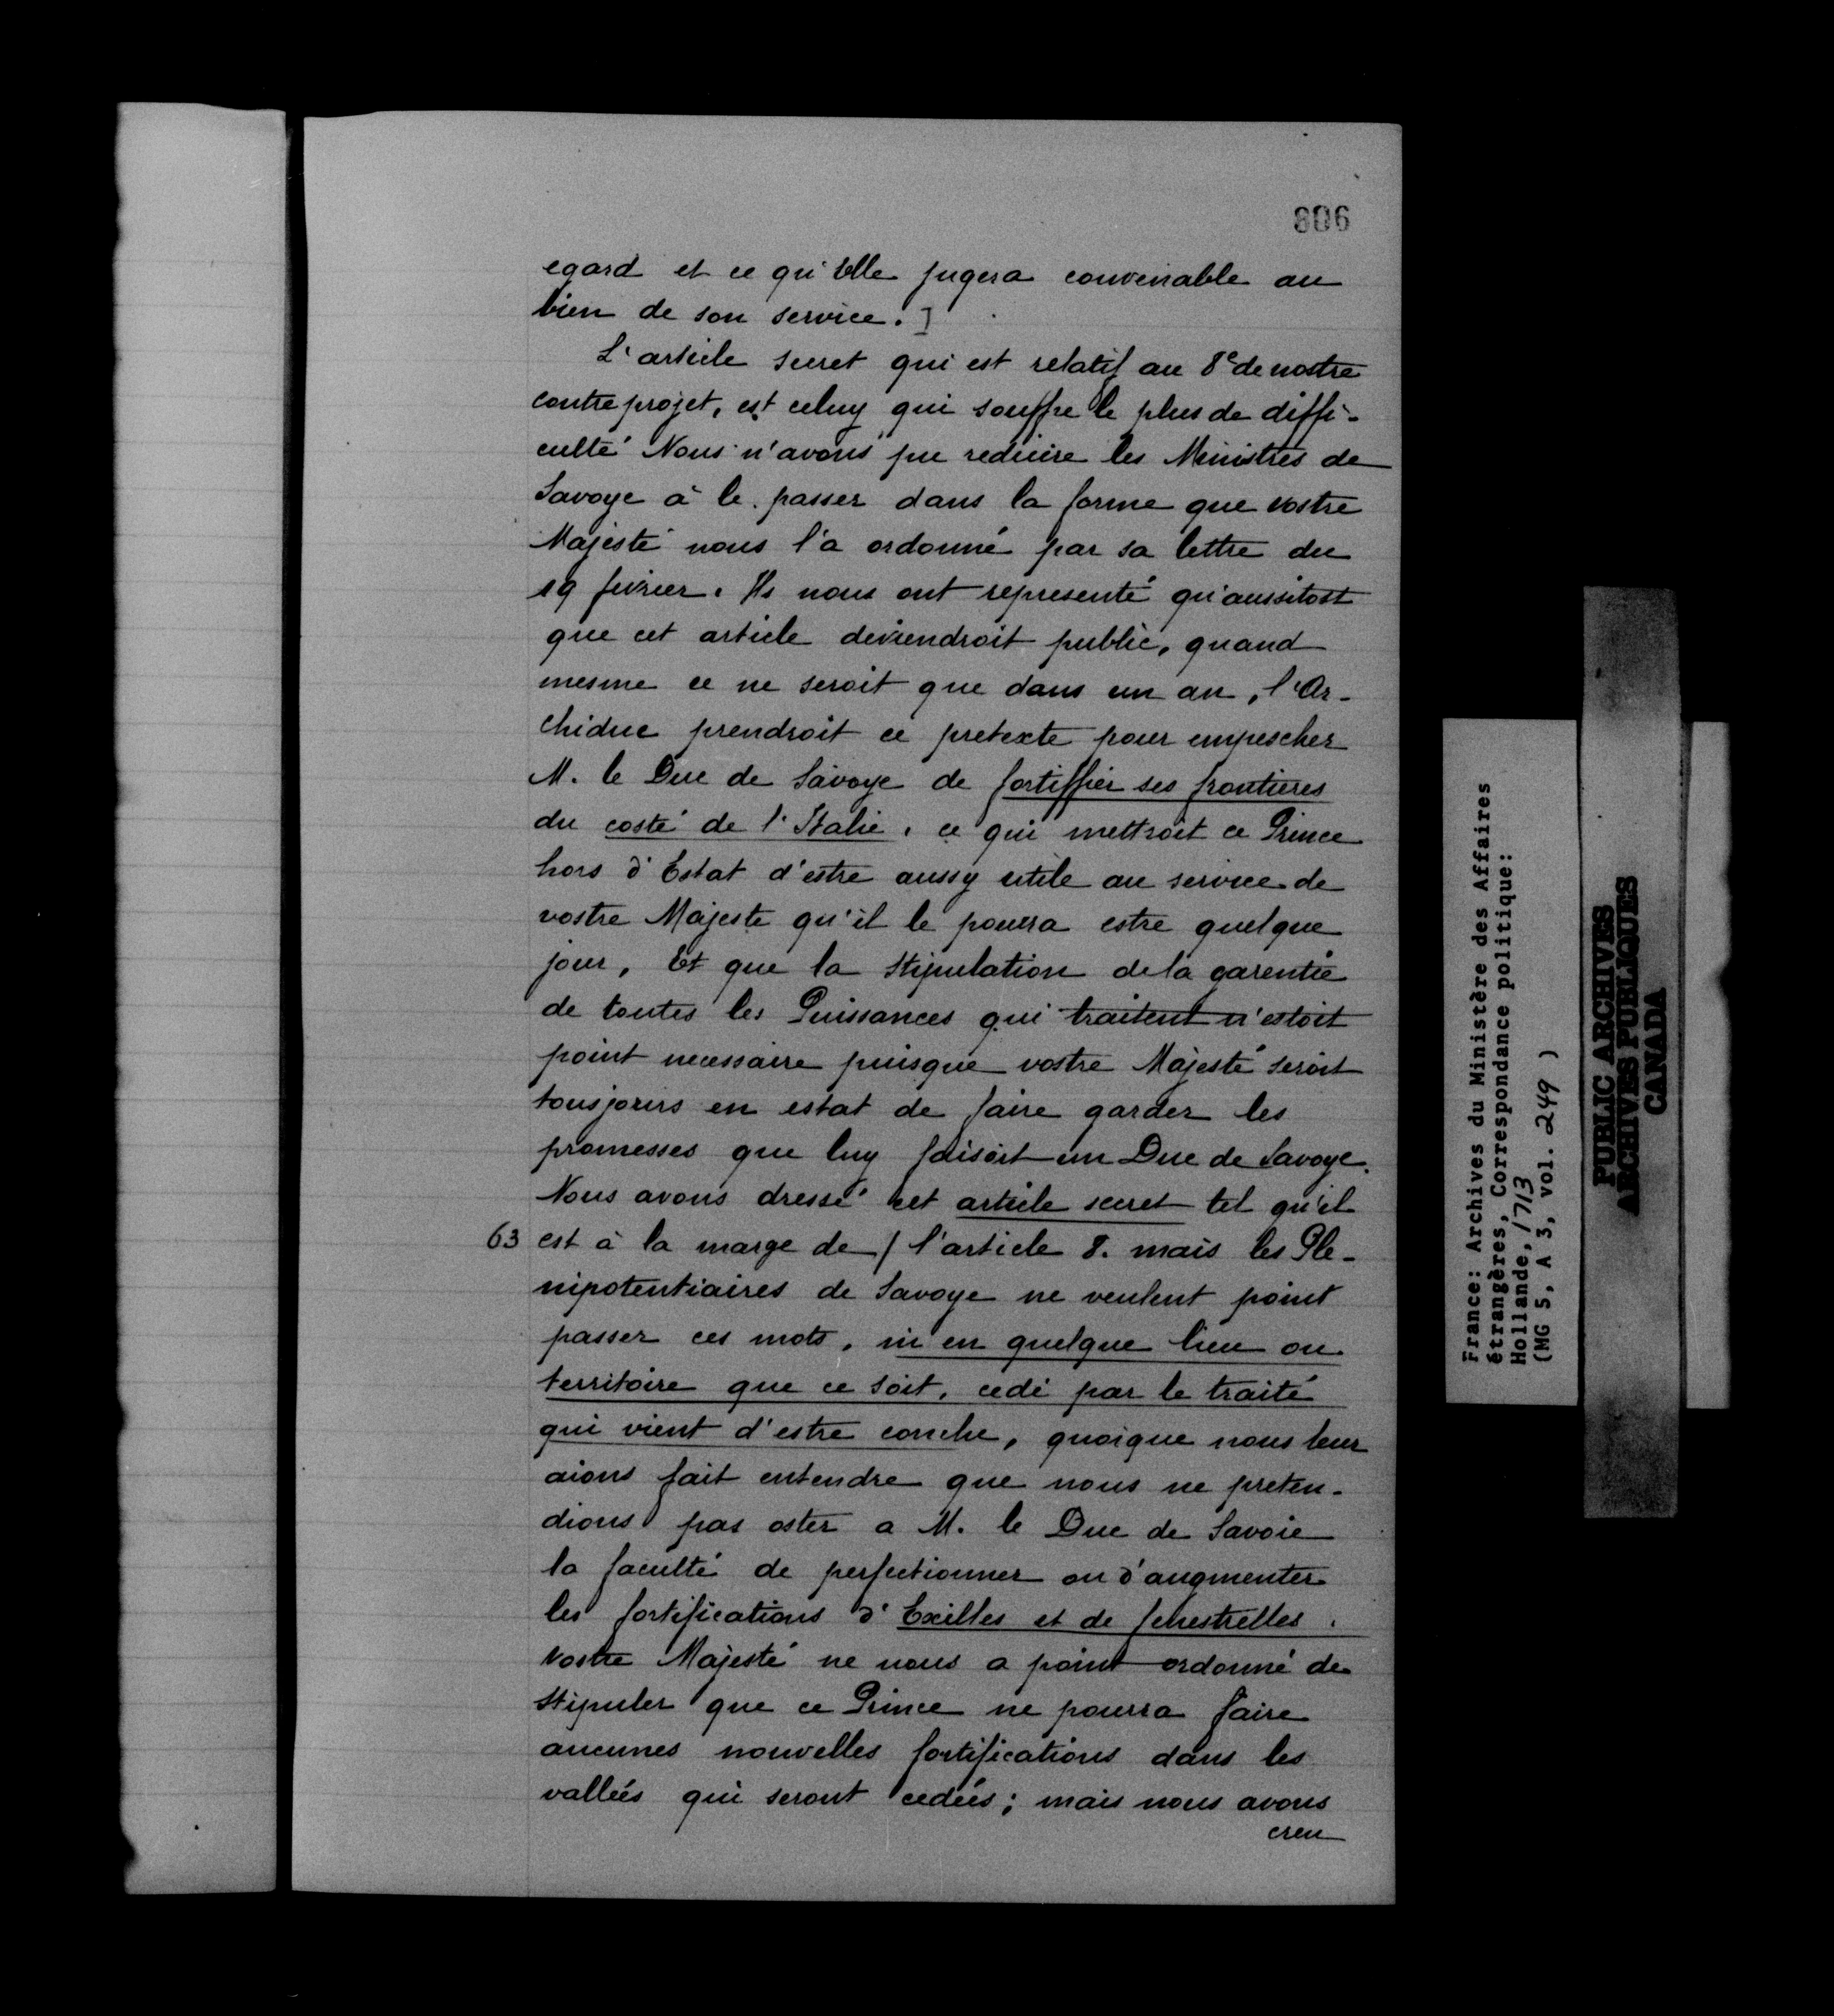 806
egard et ce qu'Elle jugera convenable au
bien de son service.]
L'article secret qui est relatif au 8e de nostre
contreprojet, est celuy qui souffre le plus de diffi-
culté Nous n'avons pu reduire les Ministres de
Savoye à le passer dans la forme que vostre
Majesté nous l'a ordonné par sa lettre du
19 fevrier. Ils nous ont representé qu'aussitost
que cet article deviendroit public, quand
mesme ce ne seroit que dans un an, l'Ar-
chiduc prendroit ce pretexte pour empescher
M. le Duc de Savoye de fortiffier ses frontieres
du costé de l'Italie, ce qui mettroit ce Prince
hors d'Estat d'estre aussy utile au service de
vostre Majesté qu'il le pourra estre quelque
jour, Et que la stipulation de la garentie
de toutes les Puissances qui traitent n'estoit
point necessaire puisque vostre Majesté seroit
tousjours en estat de faire garder les
promesses que luy faisoit un Duc de Savoye.
Nous avons dressé cet article secret tel qu'il
63 est à la marge de / l'article 8. mais les Ple-
nipotentiaires de Savoye ne veulent point
passer ces mots, ni en quelque lieu ou
territoire que ce soit, cedé par le traité
qui vient d'estre conclu, quoique nous leur
aions fait entendre que nous ne preten-
dions pas oster a M. le Duc de Savoie
la faculté de perfectionner ou d'augmenter
les fortifications d'Exilles et de fenestrelles.
Vostre Majesté ne nous a point ordonné de
stipuler que ce Prince ne pourra faire
aucunes nouvelles fortifications dans les
vallées qui seront cedées; mais nous avons
creu
France: Archives du Ministère des Affaires
étrangères, Correspondance politique:
Hollande, 1713
(MG 5, A 3, vol. 249 )
PUBLIC ARCHIVES
ARCHIVES PUBLIQUES
CANADA